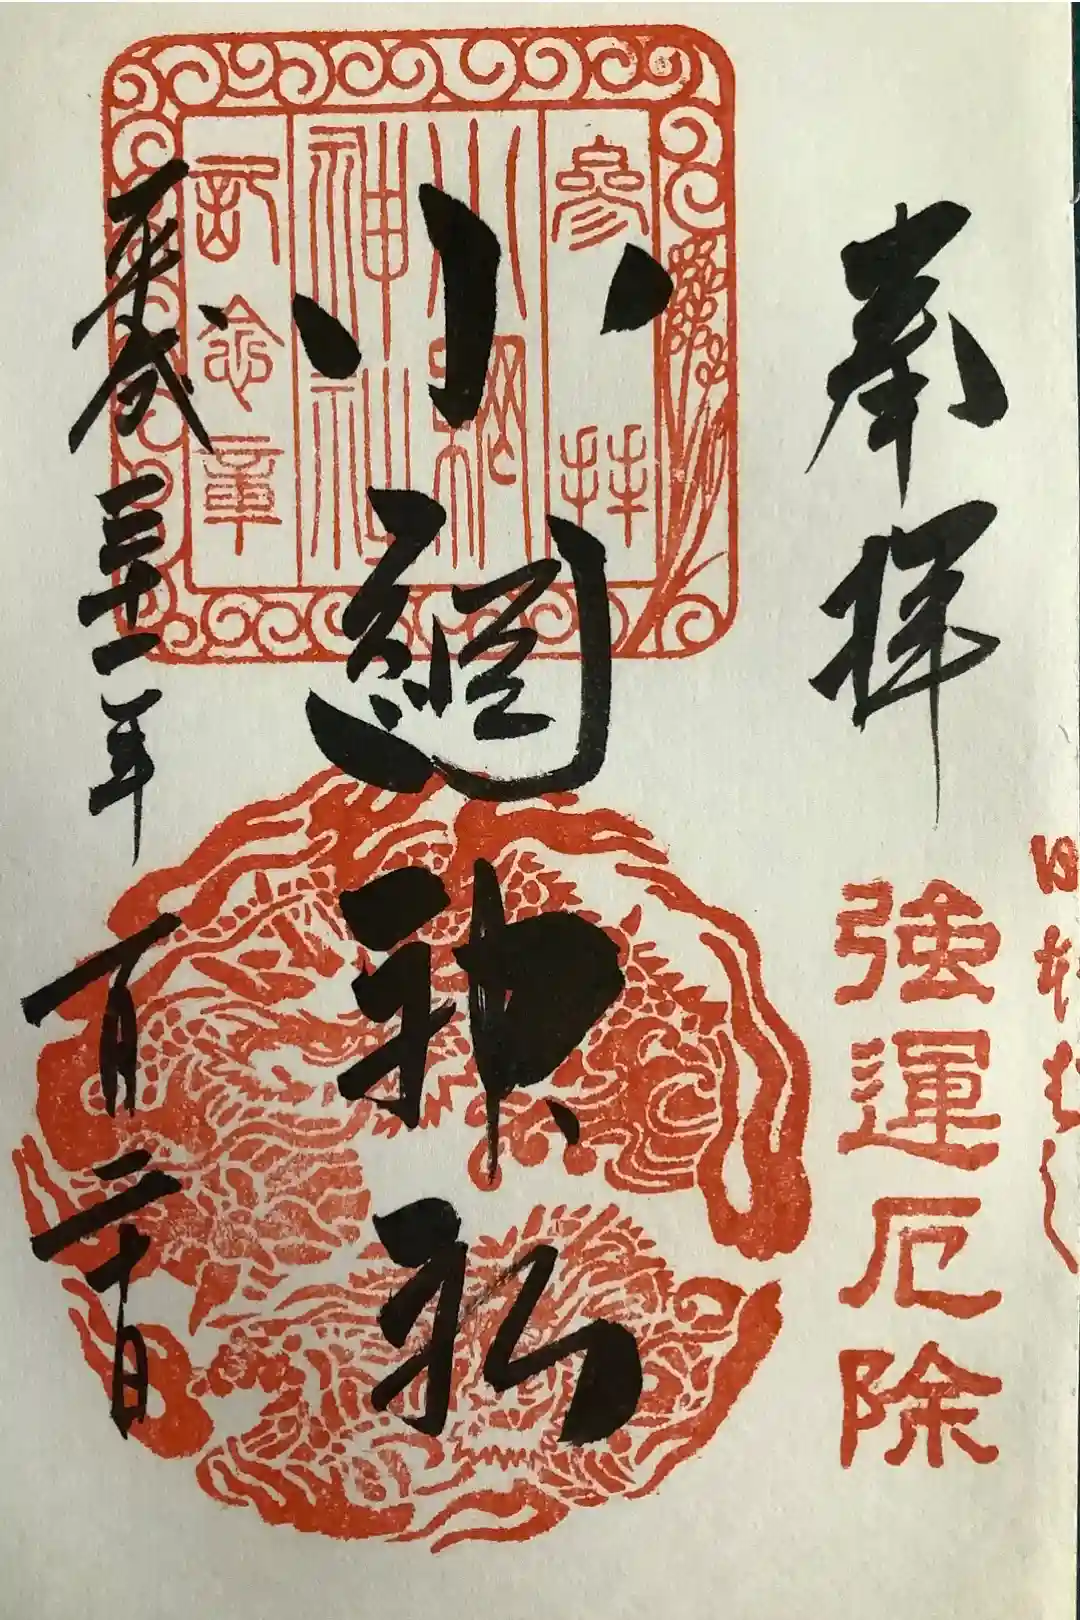 奉拝
強運厄除
參拝
小網
神社
記念章
小網神社
平成三十一年一月二十日